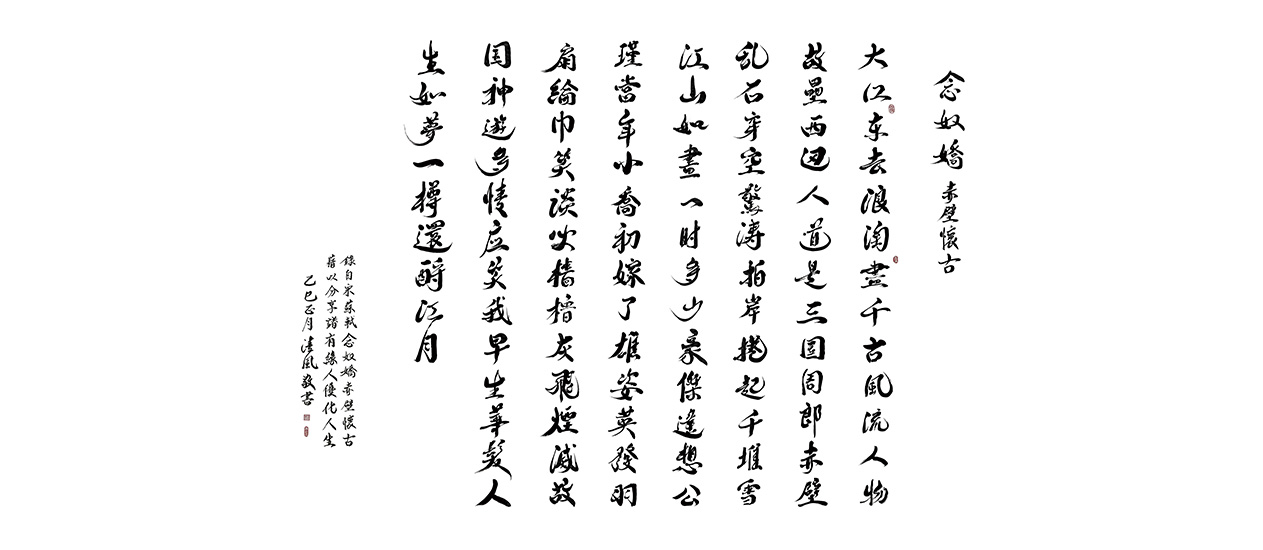 念奴嬌 赤壁懷古
大江东去浪淘盡千古風流人物
故壘西邊人道是三国周郎赤壁
乱石穿空驚涛拍岸捲起千堆雪
江山如畫一时多少豪傑遙想公
瑾當年小喬初嫁了雄姿英發羽
扇綸巾笑談间檣櫓灰飛煙滅故
国神遊多情应笑我早生華髮人
生如夢一樽還酹江月
錄自宋蘇軾念奴嬌赤壁懷古
藉以分享諸有緣人優化人生
乙巳正月 清風敬書